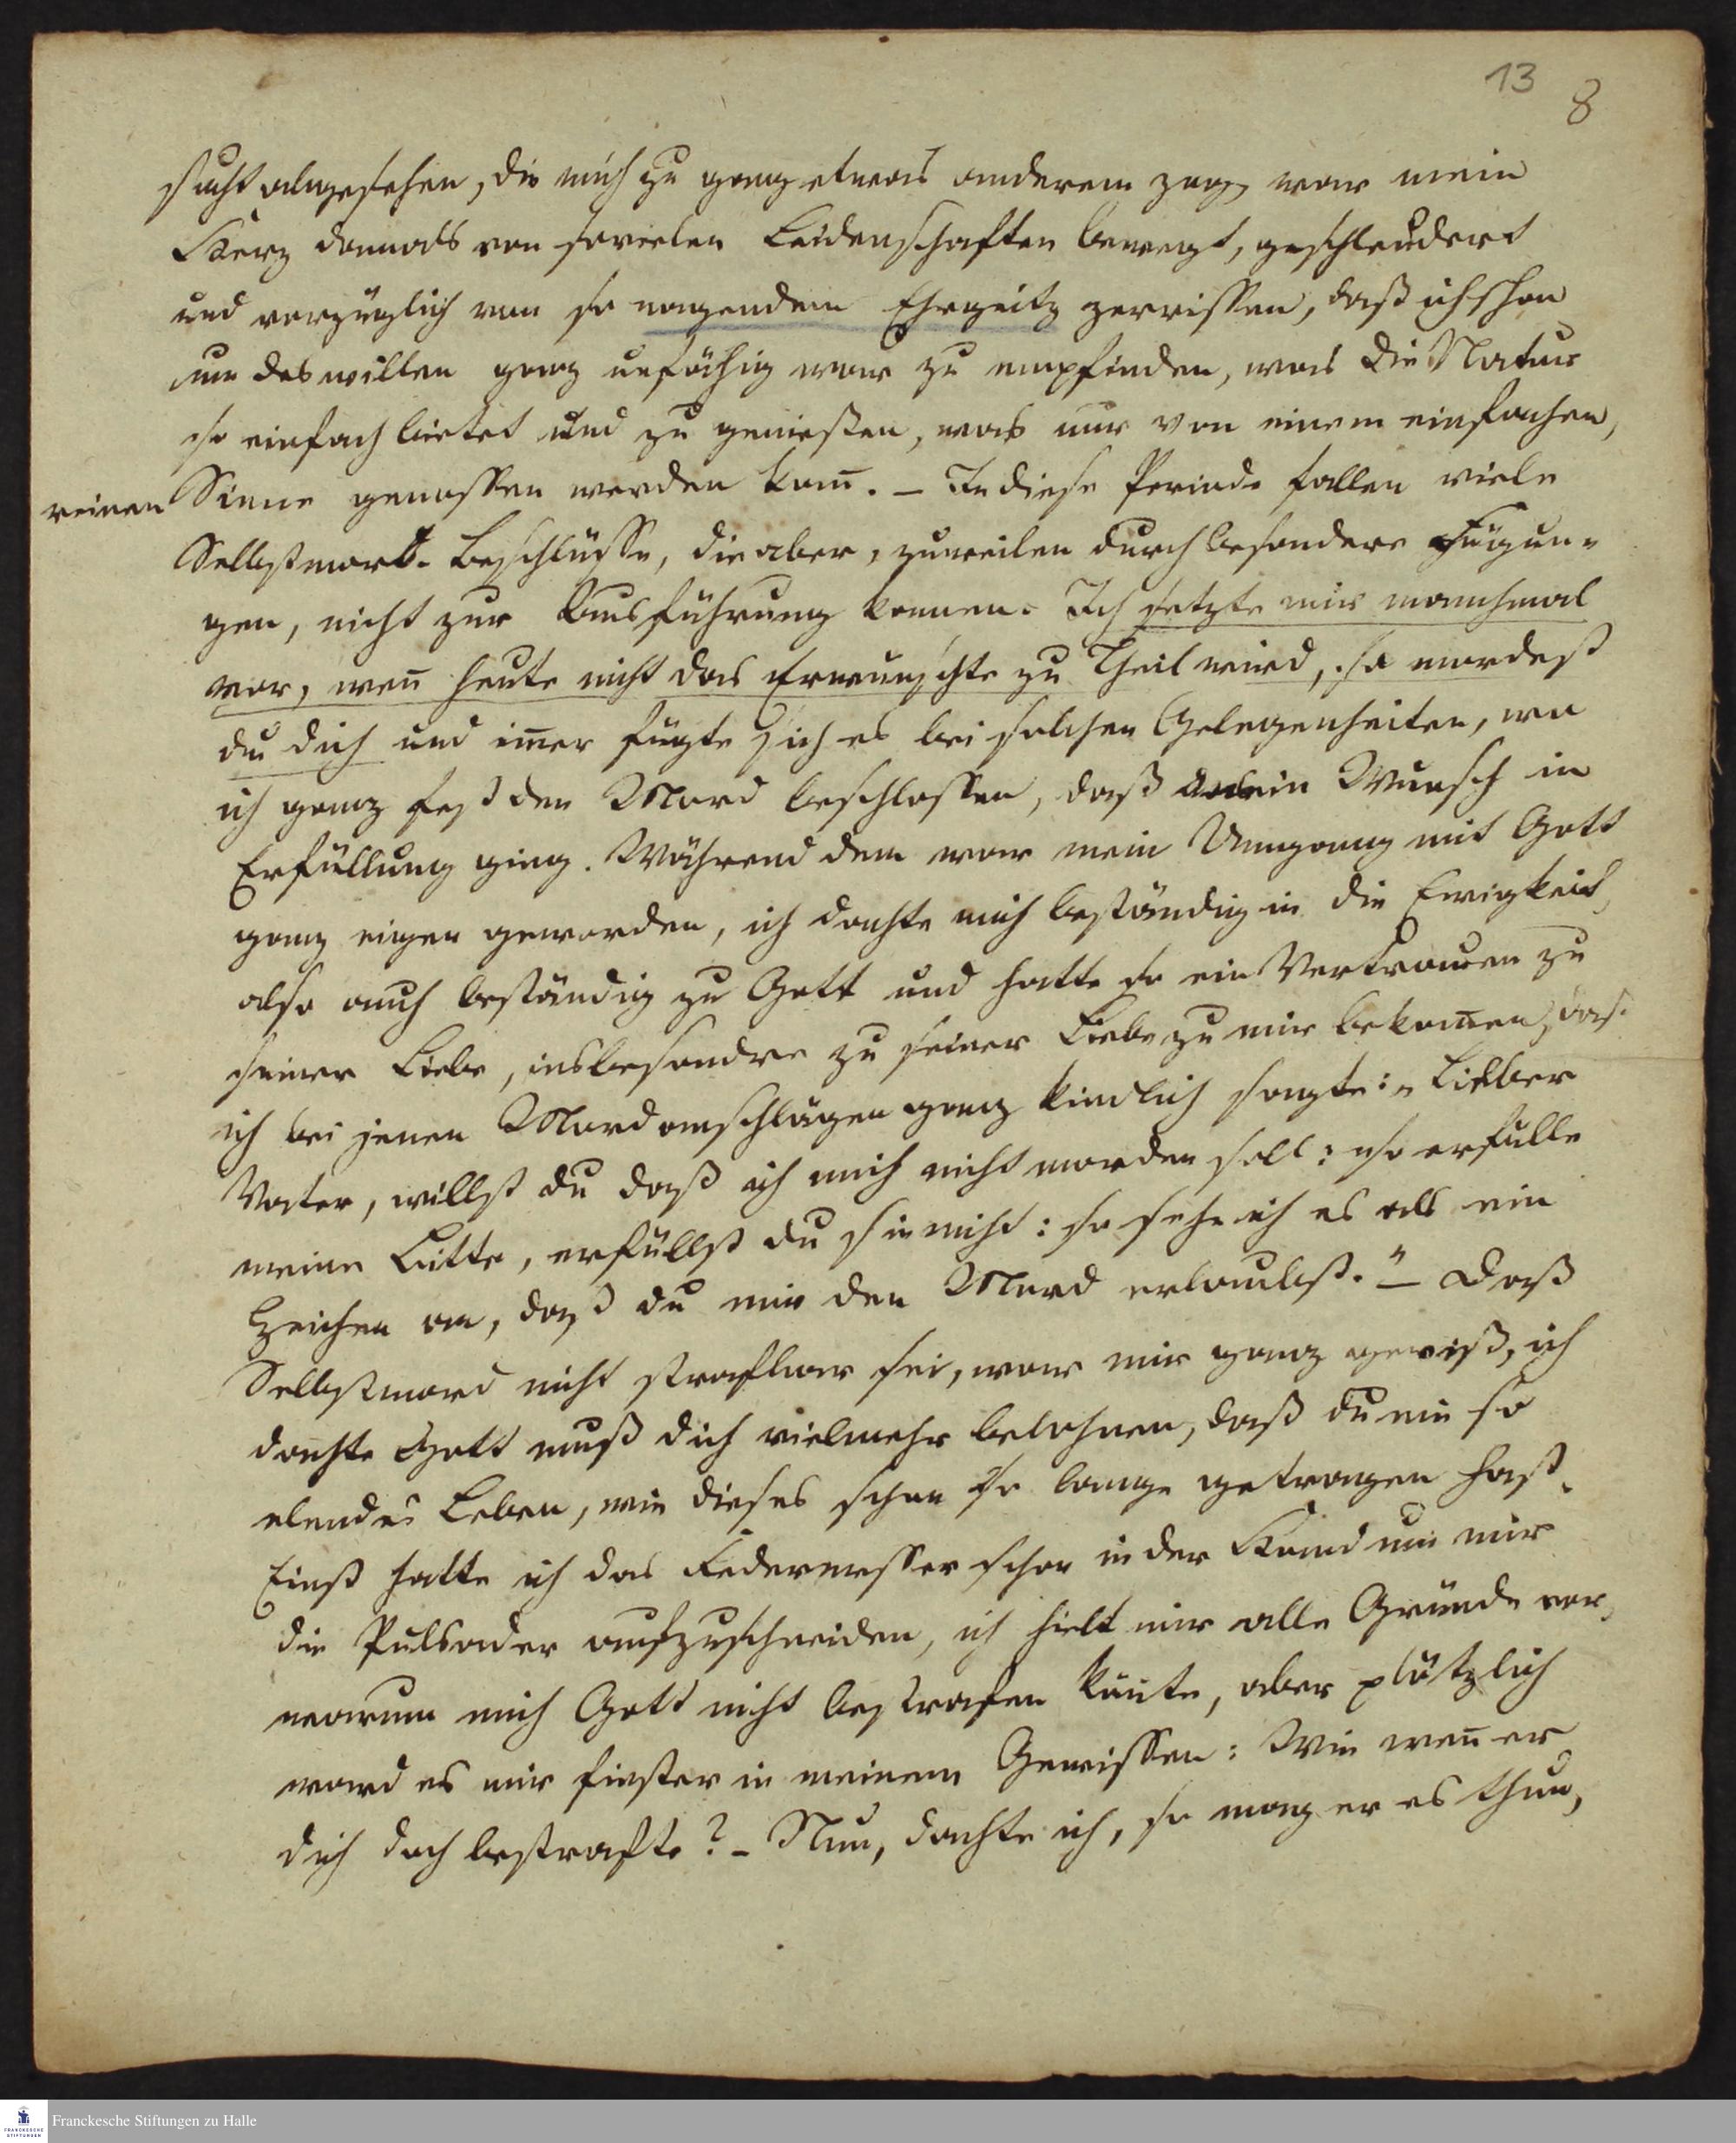 13
8
sucht abgesehen, die mich zu ganz etwas anderem zog, war mein
Herz damals von sovielen Leidenschaften bewegt, geschleudert
und vorzüglich von so nagendem Ehrgeitz zerrissen, daß ich schon
um deswillen ganz unfähig war zu empfinden, was die Natur
so einfach bietet und zu genießen, was nur von einem einfachen,
reinen Sinne genossen werden kan̄. – In diese Periode fallen viele
Selbstmord-Beschlüsse, die aber, zuweilen durch besondere Fügun-
gen, nicht zur Ausführung kamen. Ich setzte mir manchmal
vor, wen̄ heute nicht das Erwünschte zu Theil wird, so mordest
du dich und im̄er fügte sich es bei solchen Gelegenheiten, wo
ich ganz fest den Mord beschlossen, daß mein Wunsch in
Erfüllung ging. Während dem war mein Umgang mit Gott
ganz eigen geworden, ich dachte mich beständig in die Ewigkeit,
also auch beständig zu Gott und hatte so ein Vertrauen zu
seiner Liebe, insbesondre zu seiner Liebe zu mir bekom̄en, daß
ich bei jenen Mordanschlägen ganz kindlich sagte: „Lieber
Vater, willst du daß ich mich nicht morden soll: so erfülle
meine Bitte, erfüllst du sie nicht: so sehe ich es als ein
Zeichen an, daß du mir den Mord erlaubst.“ – Daß
Selbstmord nicht strafbar sei, war mir ganz gewiß, ich
dachte Gott muß dich vielmehr belohnen, daß du ein so
elendes Leben, wie dieses schon so lange getragen hast.
Einst hatte ich das Federmesser schon in der Hand um mir
die Pulsader aufzuschneiden, ich hielt mir alle Gründe vor,
warum mich Gott nicht bestrafen kön̄te, aber plötzlich
ward es mir finster in meinem Gewissen: Wie wen̄ er
dich doch bestrafte? – Nun, dachte ich, so mag er es thun,
Franckesche Stiftungen zu Halle
FRANCKESCHE
STIFTUNGEN